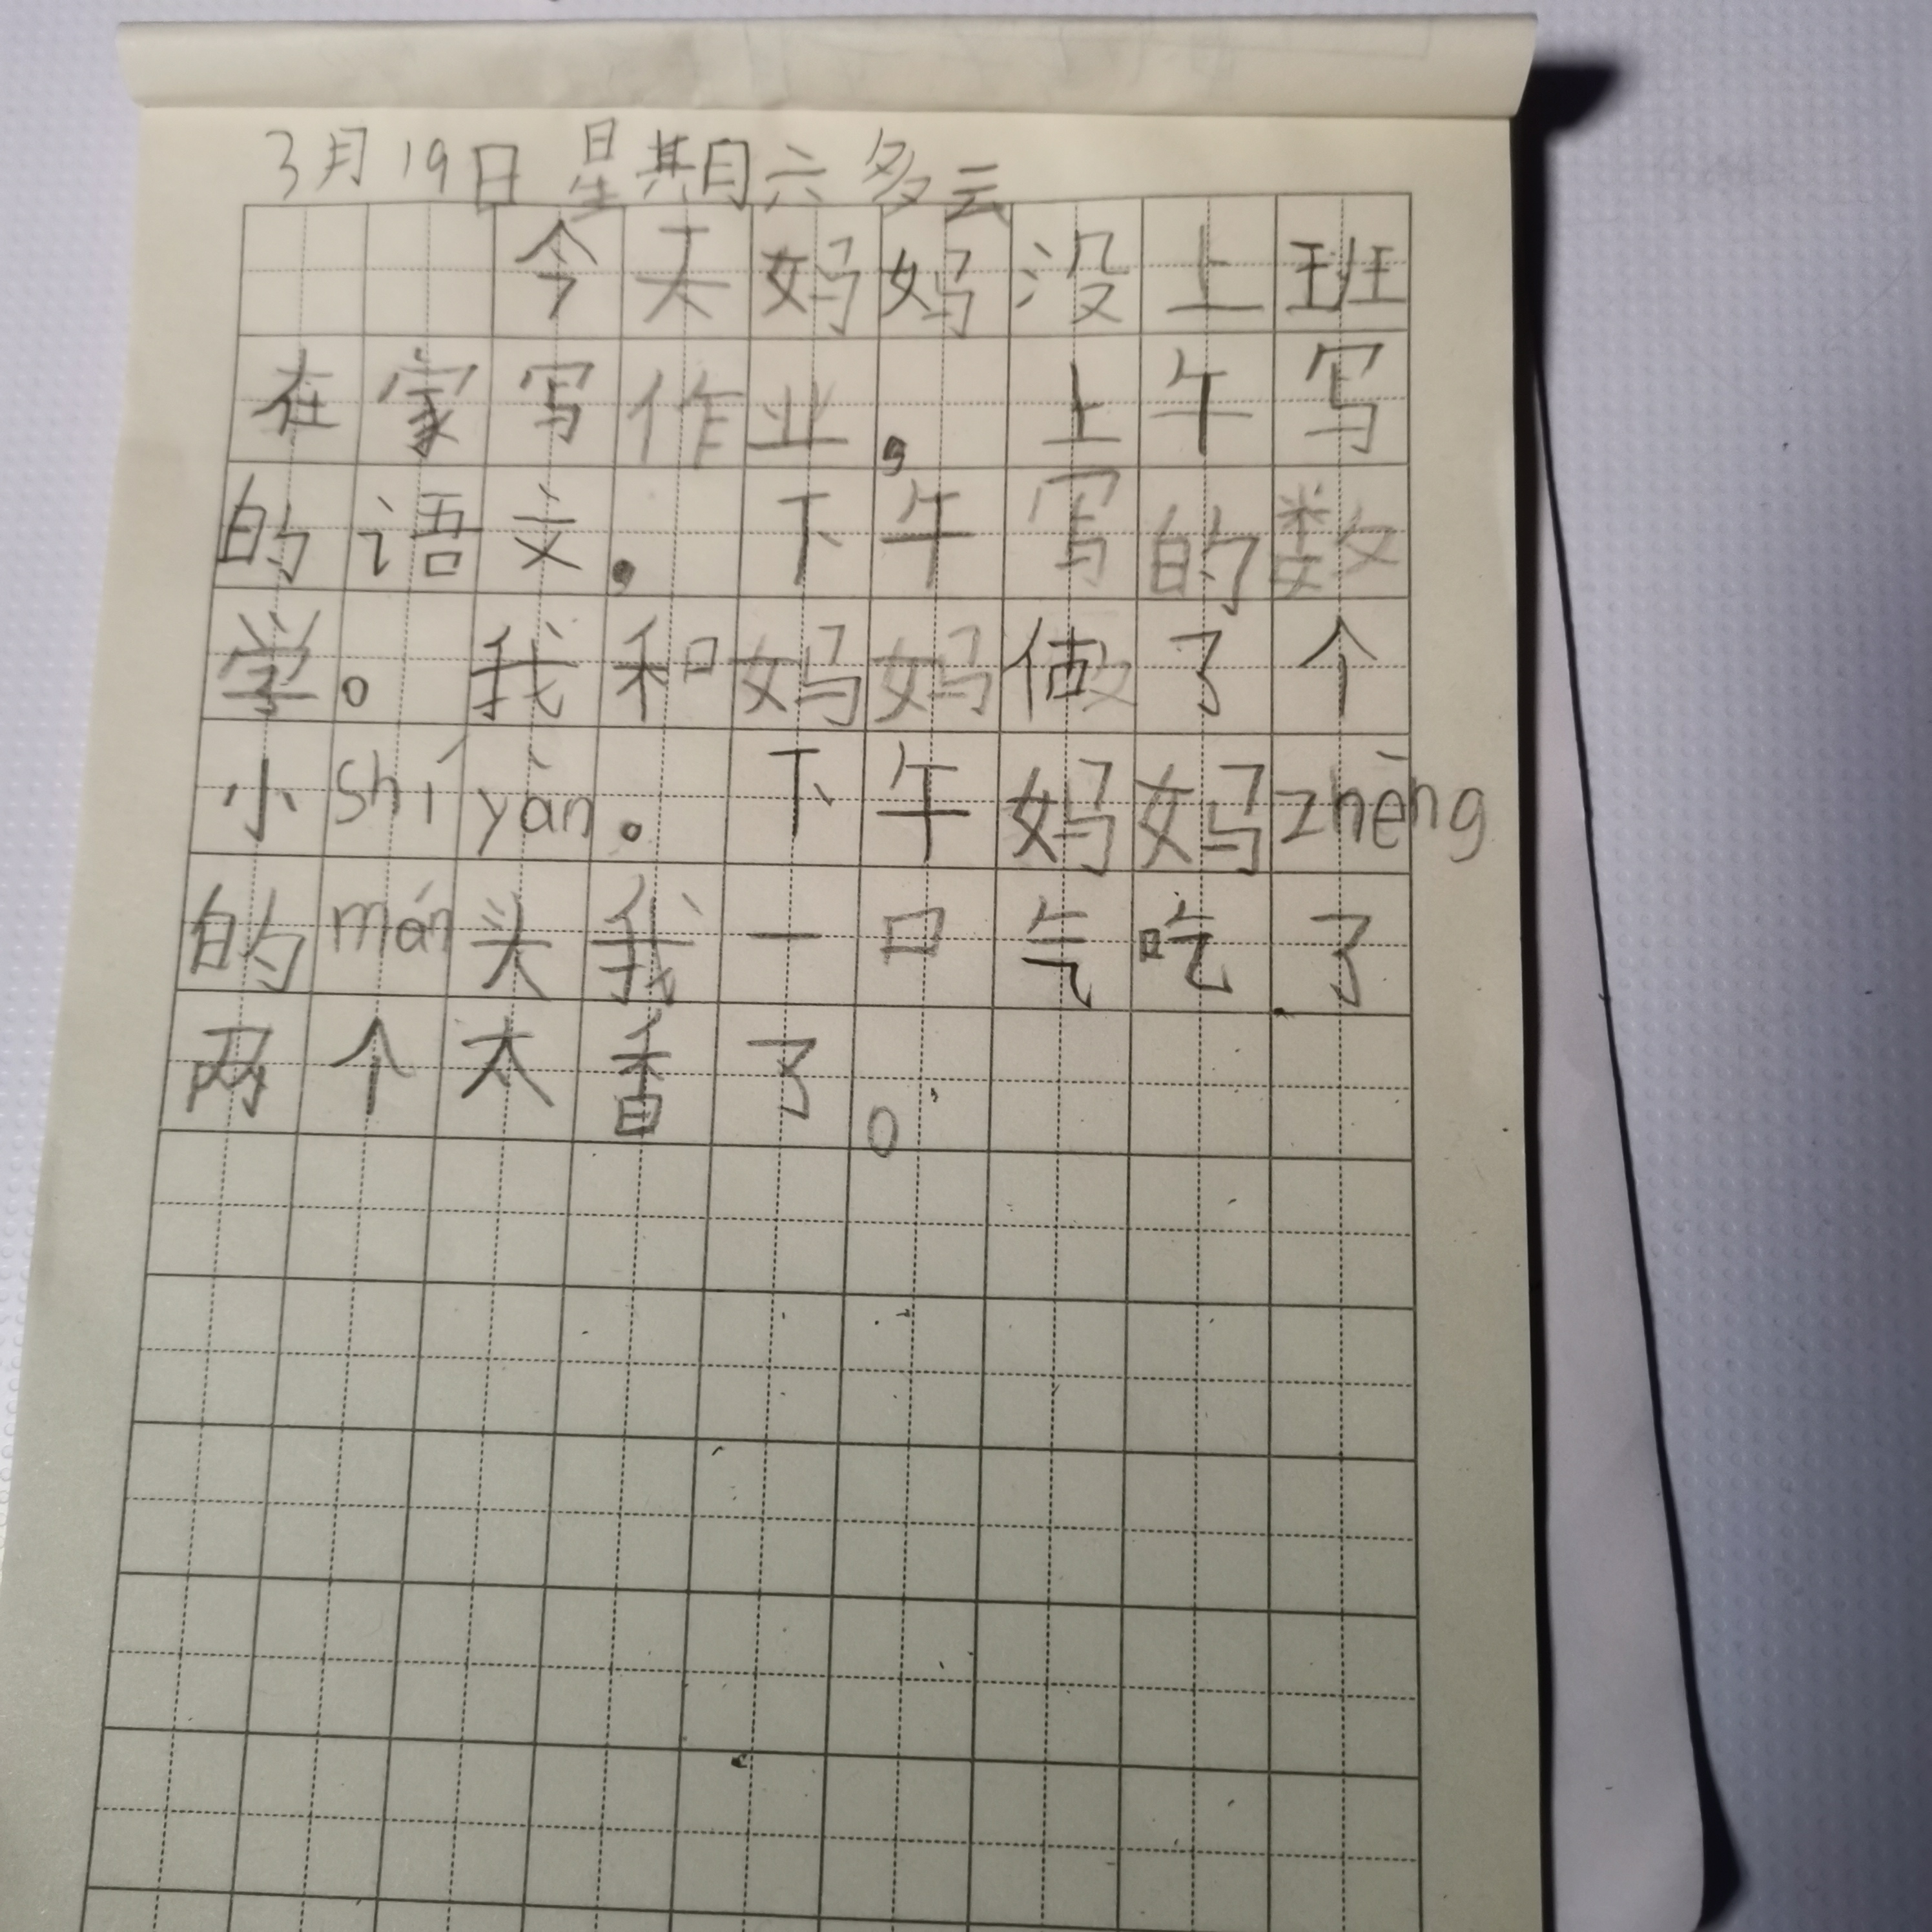 3月19日星期六多云
今天妈妈没上班
在家写作业，上午写
的语文，下午写的数
学。我和妈妈做了个
小shíyàn。下午妈妈zhēng
的mán头我一口气吃了
两个太香了。